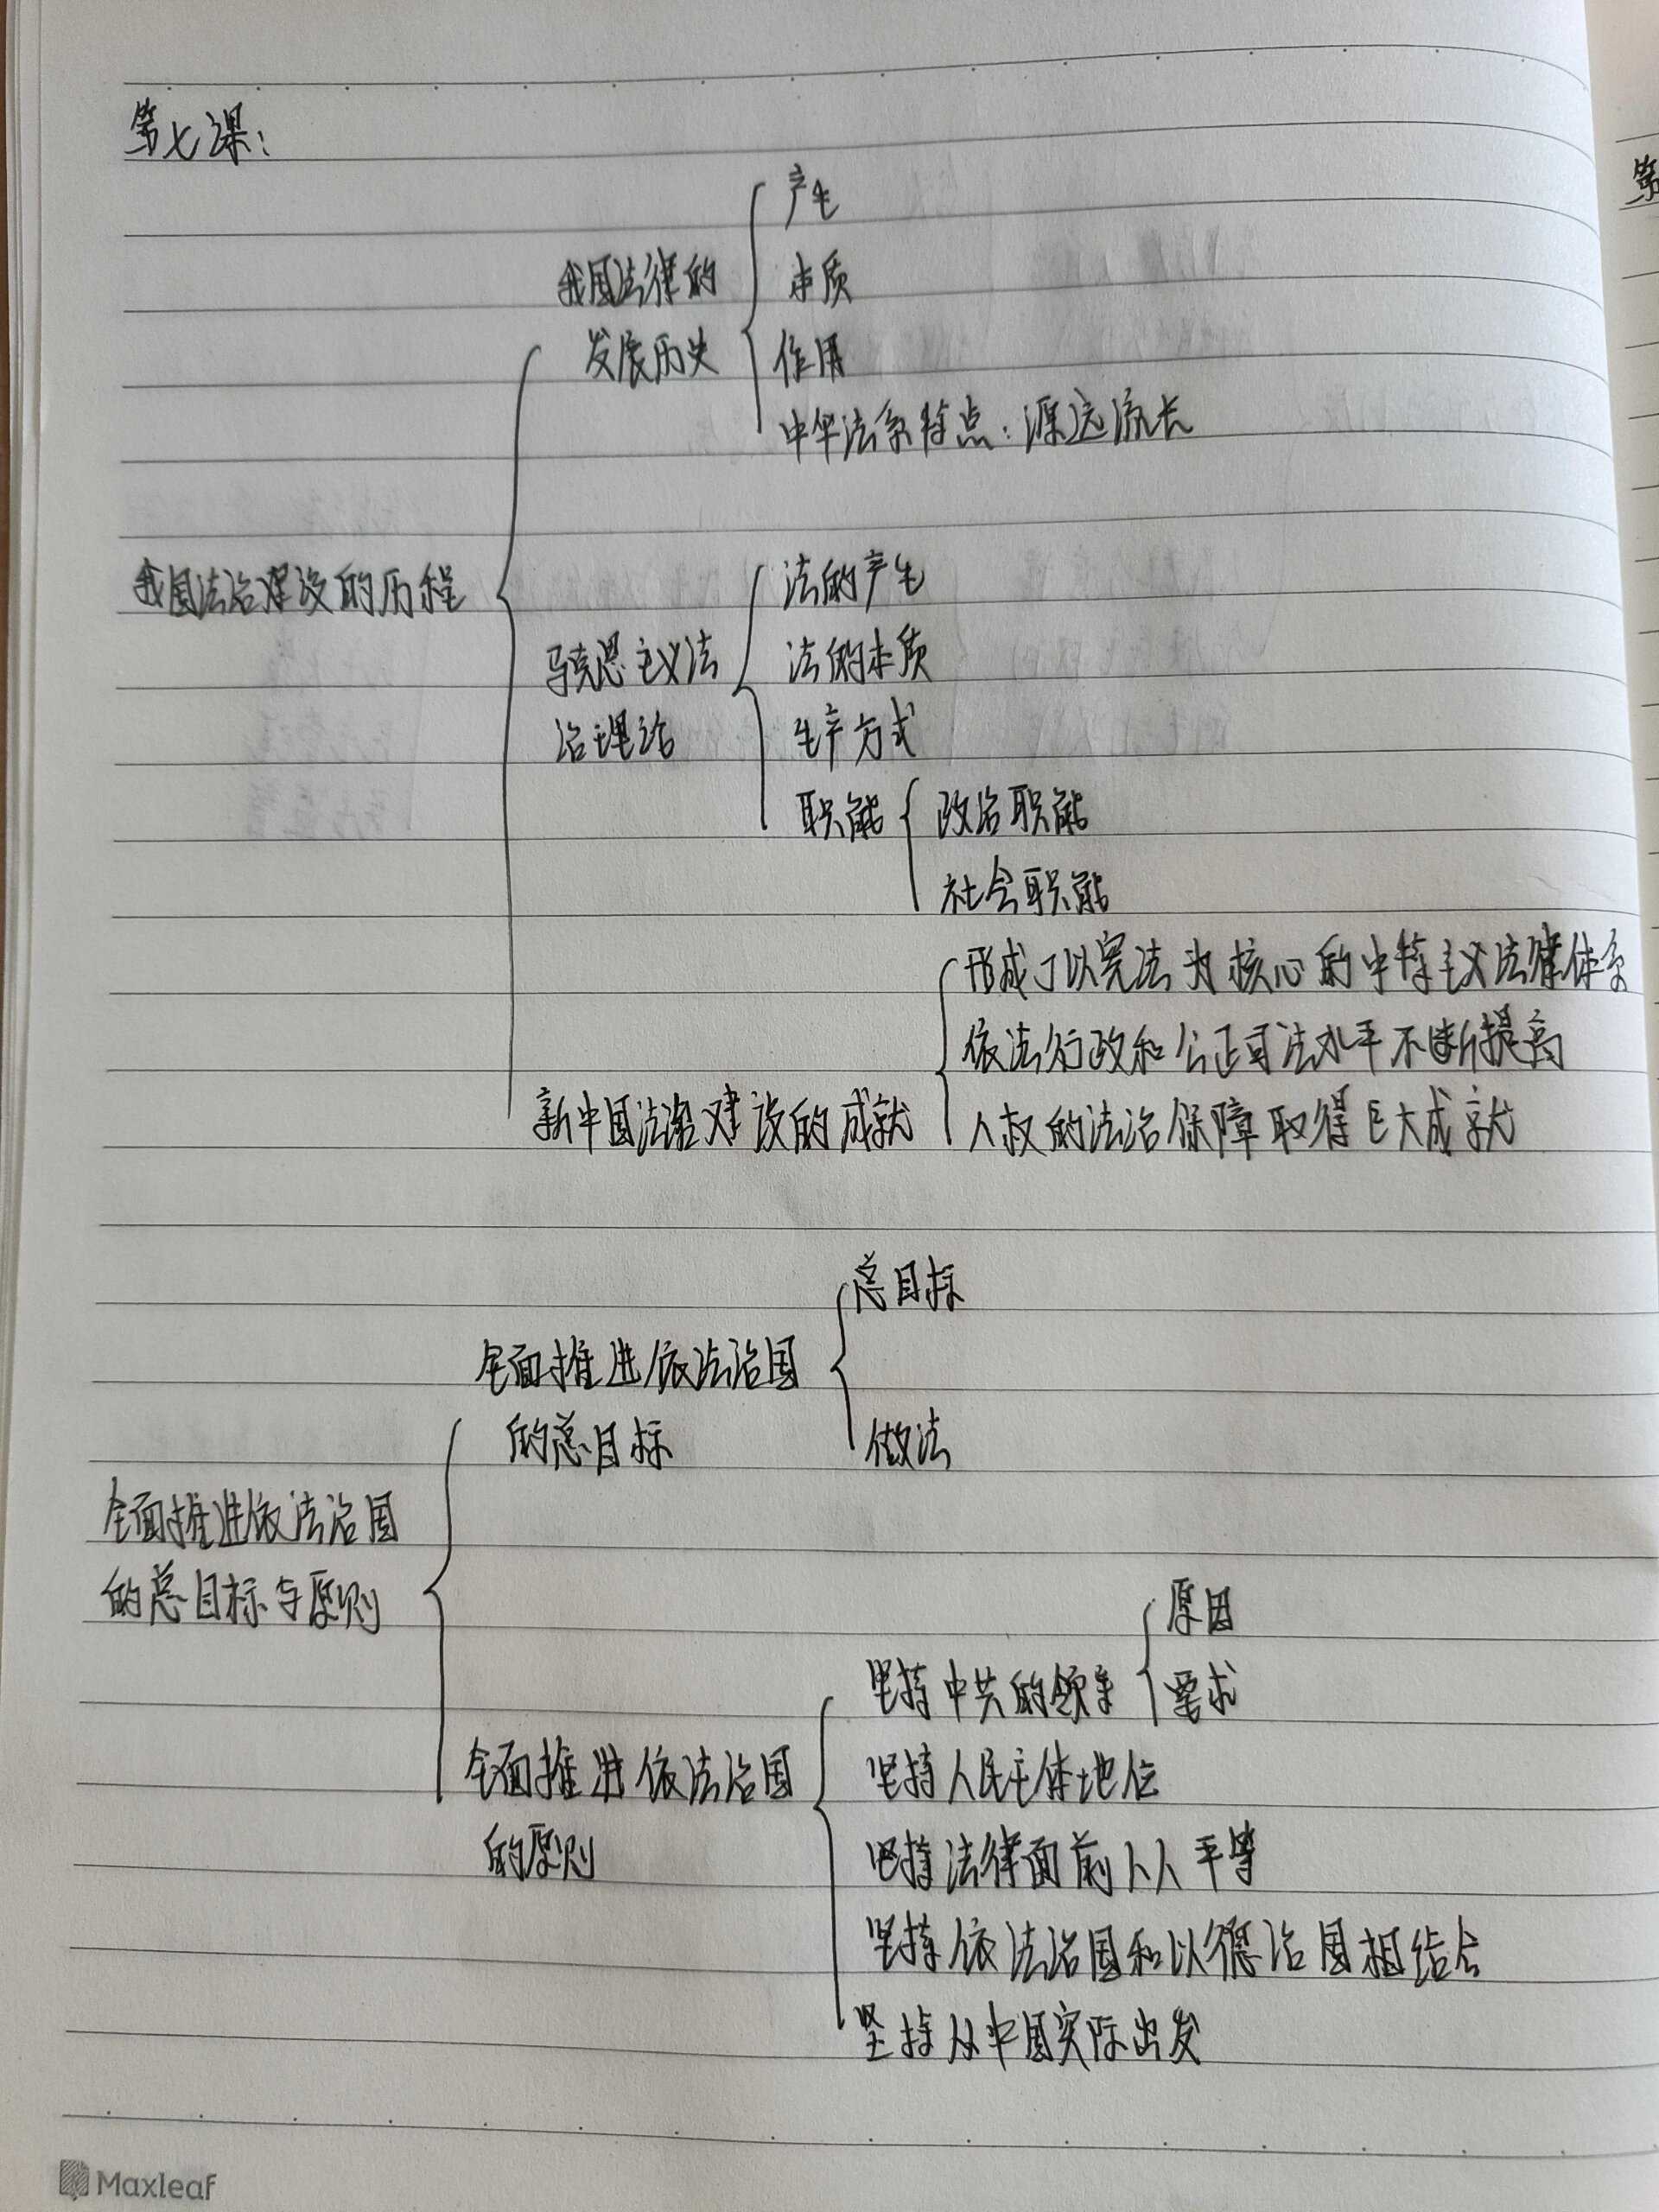 第七课：
产生
我国法律的
本质
发展历史
作用
中华法系特点：源远流长
我国法治建设的历程
法的产生
马克思主义法
法的本质
治理论
生产方式
职能
政治职能
社会职能
形成了以宪法为核心的中特主义法律体系
依法行政和公正司法水平不断提高
新中国法治建设的成就
人权的法治保障取得巨大成就
总目标
全面推进依法治国
的总目标
做法
全面推进依法治国
的总目标与原则
原因
坚持中共的领导
要求
全面推进依法治国
坚持人民主体地位
的原则
坚持法律面前人人平等
坚持依法治国和以德治国相结合
坚持从中国实际出发
Maxleaf
第